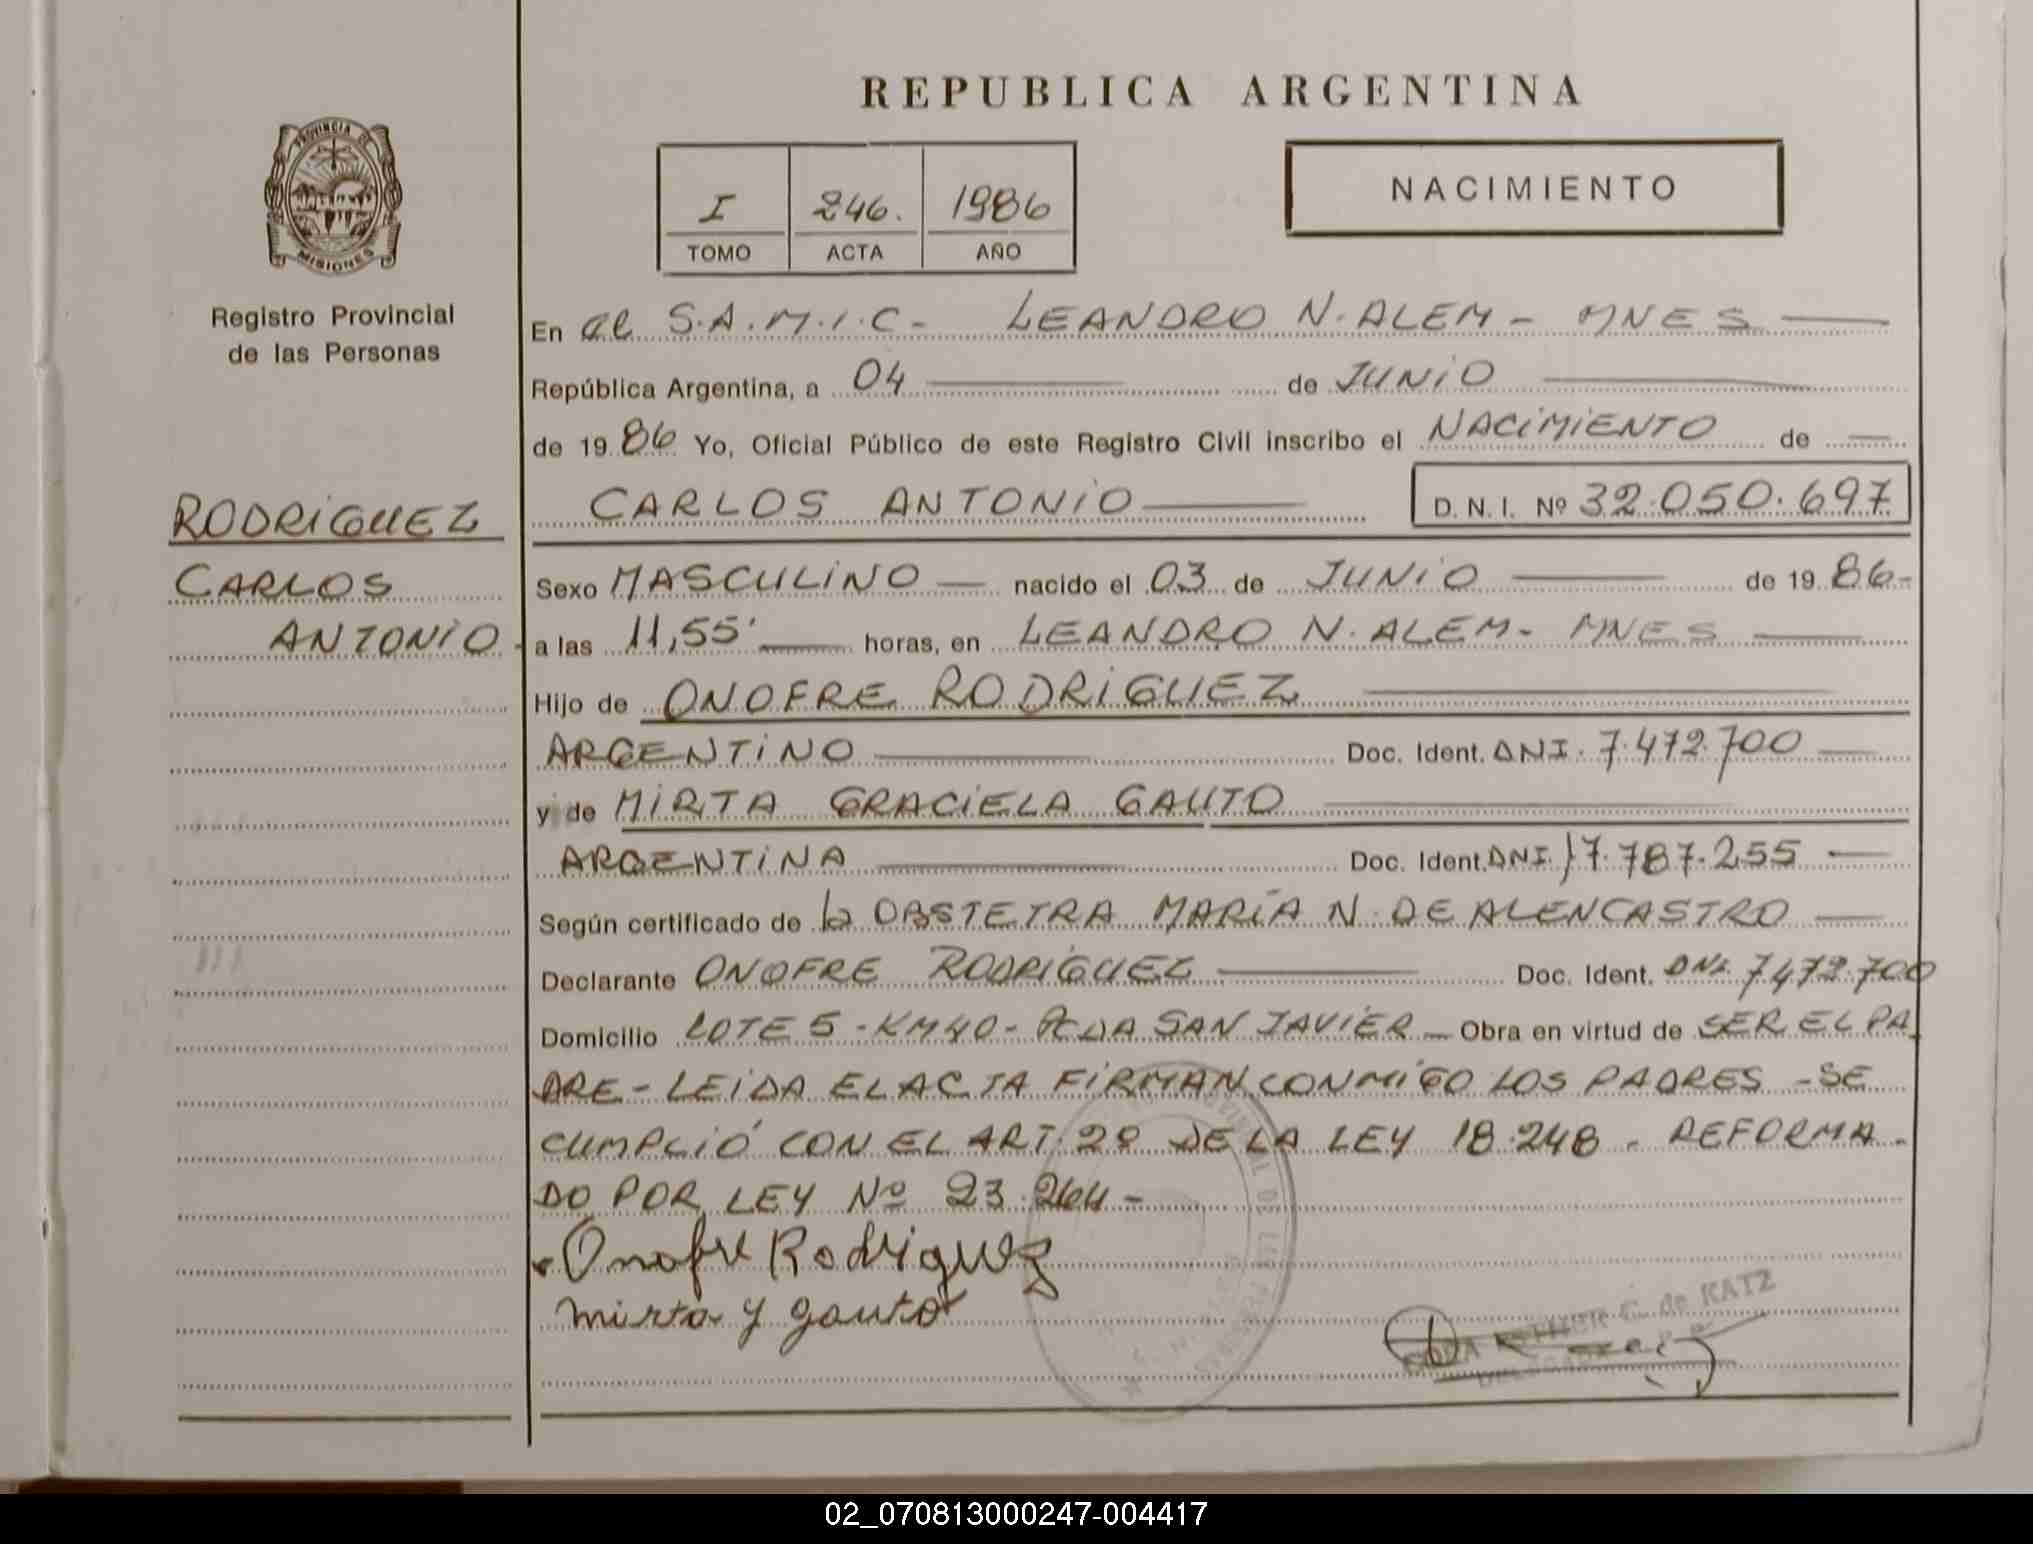 REPUBLICA ARGENTINA
PROVINCIA DE
MISIONES
Registro Provincial
de las Personas
I 246. 1986
TOMO ACTA AÑO
NACIMIENTO
En el S.A.M.I.C- LEANDRO N. ALEM - MNES
República Argentina, a 04 de JUNIO
de 19 86 Yo, Oficial Público de este Registro Civil inscribo el NACIMIENTO de
CARLOS ANTONIO D.N.I. Nº 32.050.697
RODRIGUEZ
CARLOS
ANTONIO
Sexo MASCULINO nacido el 03 de JUNIO de 19 86-
a las 11,55' horas, en LEANDRO N. ALEM- MNES
Hijo de ONOFRE RODRIGUEZ
ARGENTINO Doc. Ident. DNI. 7.472.700
y de MIRTA GRACIELA GAUTO
ARGENTINA Doc. Ident. DNI. 17.787.255
Según certificado de la OBSTETRA MARÍA N. DE ALENCASTRO
Declarante ONOFRE RODRIGUEZ Doc. Ident. DNI. 7.472.700
Domicilio LOTE 5 - KM 40 - SAN JAVIER - Obra en virtud de SER EL PA
DRE - LEIDA EL ACTA FIRMAN CONMIGO LOS PADRES - SE
CUMPLIÓ CON EL ART. 2º DE LA LEY 18.248 - REFORMA -
DO POR LEY Nº 23.264 -
Onofre Rodriguez
mirta y gauto
de KATZ
02_070813000247-004417